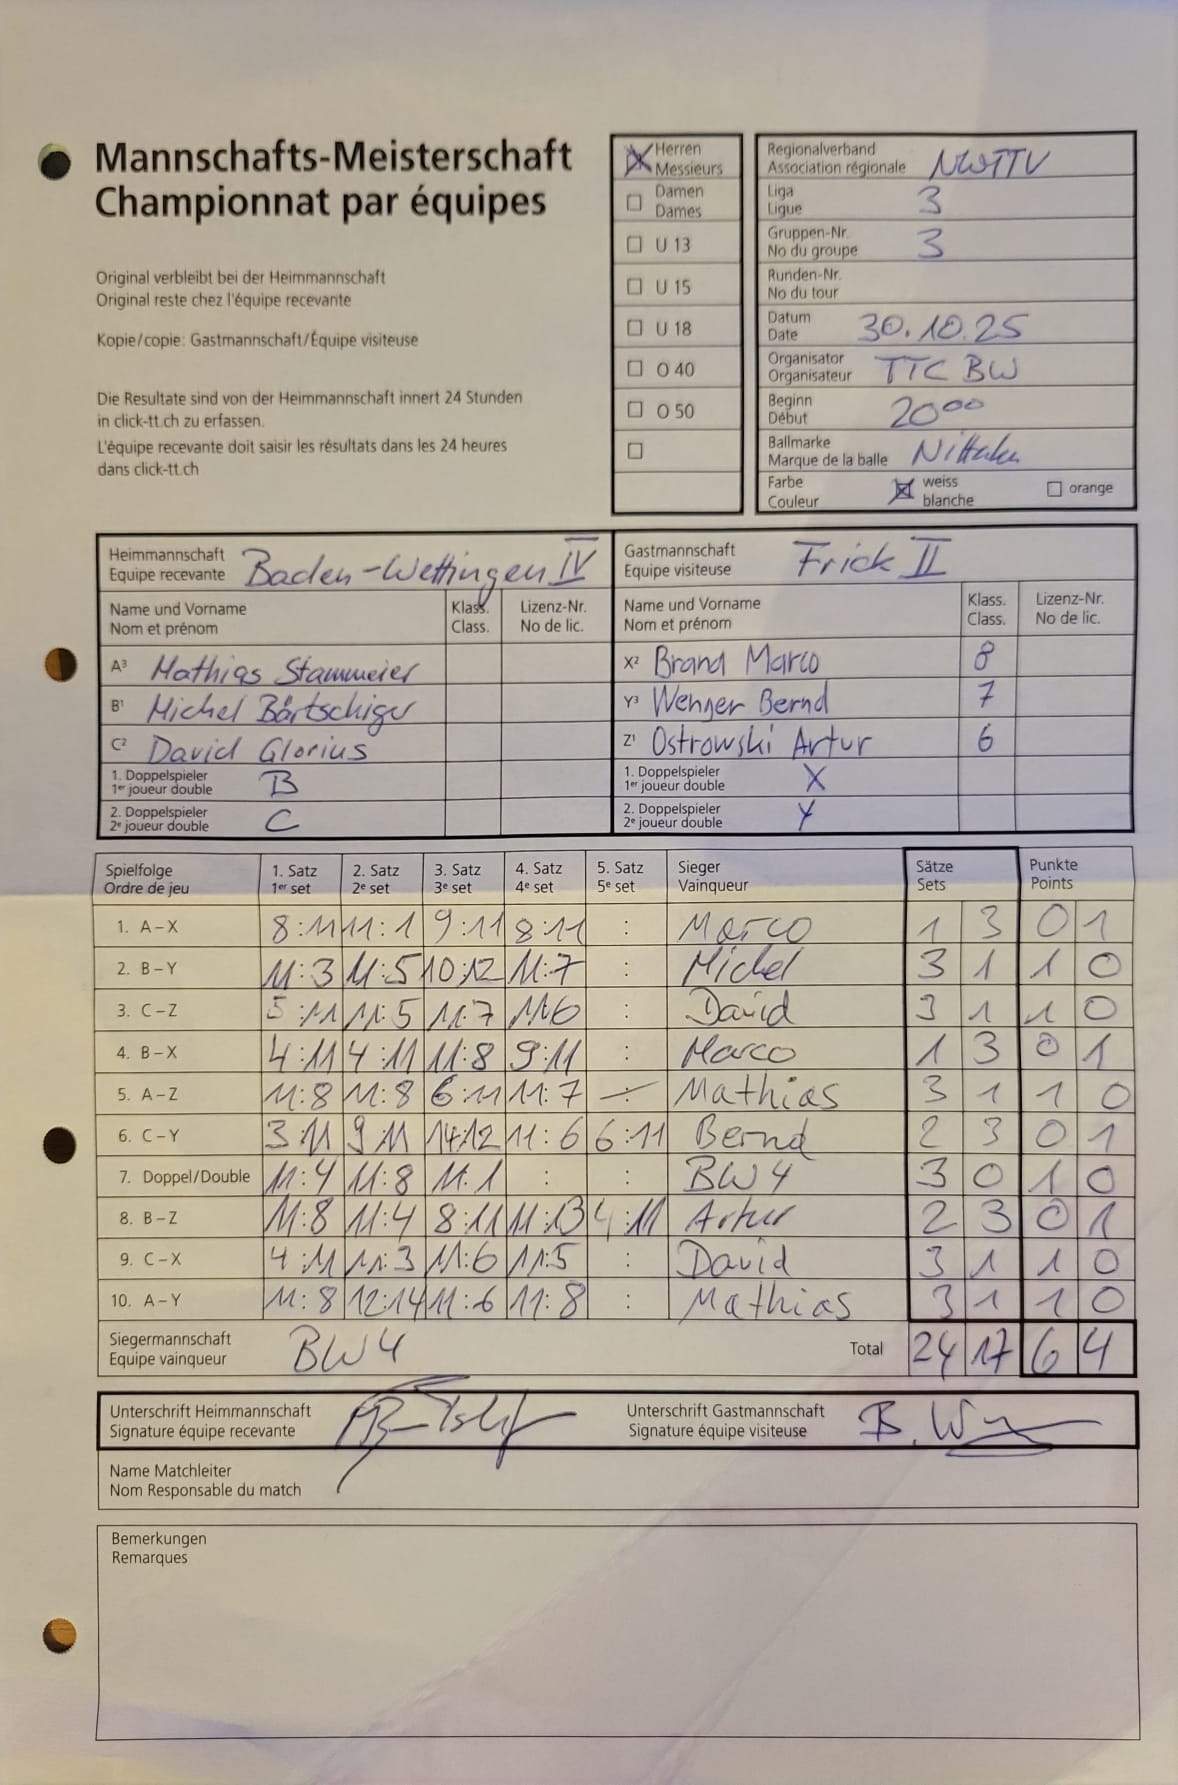 Mannschafts-Meisterschaft
Championnat par équipes
Original verbleibt bei der Heimmannschaft
Original reste chez l'équipe recevante
Kopie/copie: Gastmannschaft/Équipe visiteuse
Die Resultate sind von der Heimmannschaft innert 24 Stunden
in click-tt.ch zu erfassen.
L'équipe recevante doit saisir les résultats dans les 24 heures
dans click-tt.ch
Herren
Messieurs
Damen
Dames
U 13
U 15
U 18
O 40
O 50
Regionalverband
Association régionale NWTTV
Liga
Ligue 3
Gruppen-Nr.
No du groupe 3
Runden-Nr.
No du tour
Datum
Date 30.10.25
Organisator
Organisateur TTC BW
Beginn
Début 20⁰⁰
Ballmarke
Marque de la balle Nittaku
Farbe weiss
Couleur blanche orange
Heimmannschaft
Equipe recevante Baden-Wettingen IV
Gastmannschaft
Equipe visiteuse Frick II
Name und Vorname Klass. Lizenz-Nr.
Nom et prénom Class. No de lic.
Name und Vorname Klass. Lizenz-Nr.
Nom et prénom Class. No de lic.
A³ Mathias Stammeier
X² Brand Marco 8
B¹ Michel Bärtschiger
Y³ Wenger Bernd 7
C² David Glorius
Z¹ Ostrowski Artur 6
1. Doppelspieler
1er joueur double B
1. Doppelspieler
1er joueur double X
2. Doppelspieler
2e joueur double C
2. Doppelspieler
2e joueur double Y
Spielfolge 1. Satz 2. Satz 3. Satz 4. Satz 5. Satz Sieger Sätze Punkte
Ordre de jeu 1er set 2e set 3e set 4e set 5e set Vainqueur Sets Points
1. A–X 8:11 11:1 9:11 8:11 : Marco 1 3 0 1
2. B–Y 11:3 11:5 10:12 11:7 : Michel 3 1 1 0
3. C–Z 5:11 11:5 11:7 11:6 : David 3 1 1 0
4. B–X 4:11 4:11 11:8 9:11 : Marco 1 3 0 1
5. A–Z 11:8 11:8 6:11 11:7 : Mathias 3 1 1 0
6. C–Y 3:11 9:11 14:12 11:6 6:11 Bernd 2 3 0 1
7. Doppel/Double 11:4 11:8 11:1 : : BW 4 3 0 1 0
8. B–Z 11:8 11:4 8:11 11:13 4:11 Artur 2 3 0 1
9. C–X 4:11 11:3 11:6 11:5 : David 3 1 1 0
10. A–Y 11:8 12:14 11:6 11:8 : Mathias 3 1 1 0
Siegermannschaft
Equipe vainqueur BW 4 Total 24 17 6 4
Unterschrift Heimmannschaft
Signature équipe recevante
Unterschrift Gastmannschaft
Signature équipe visiteuse B. W
Name Matchleiter
Nom Responsable du match
Bemerkungen
Remarques